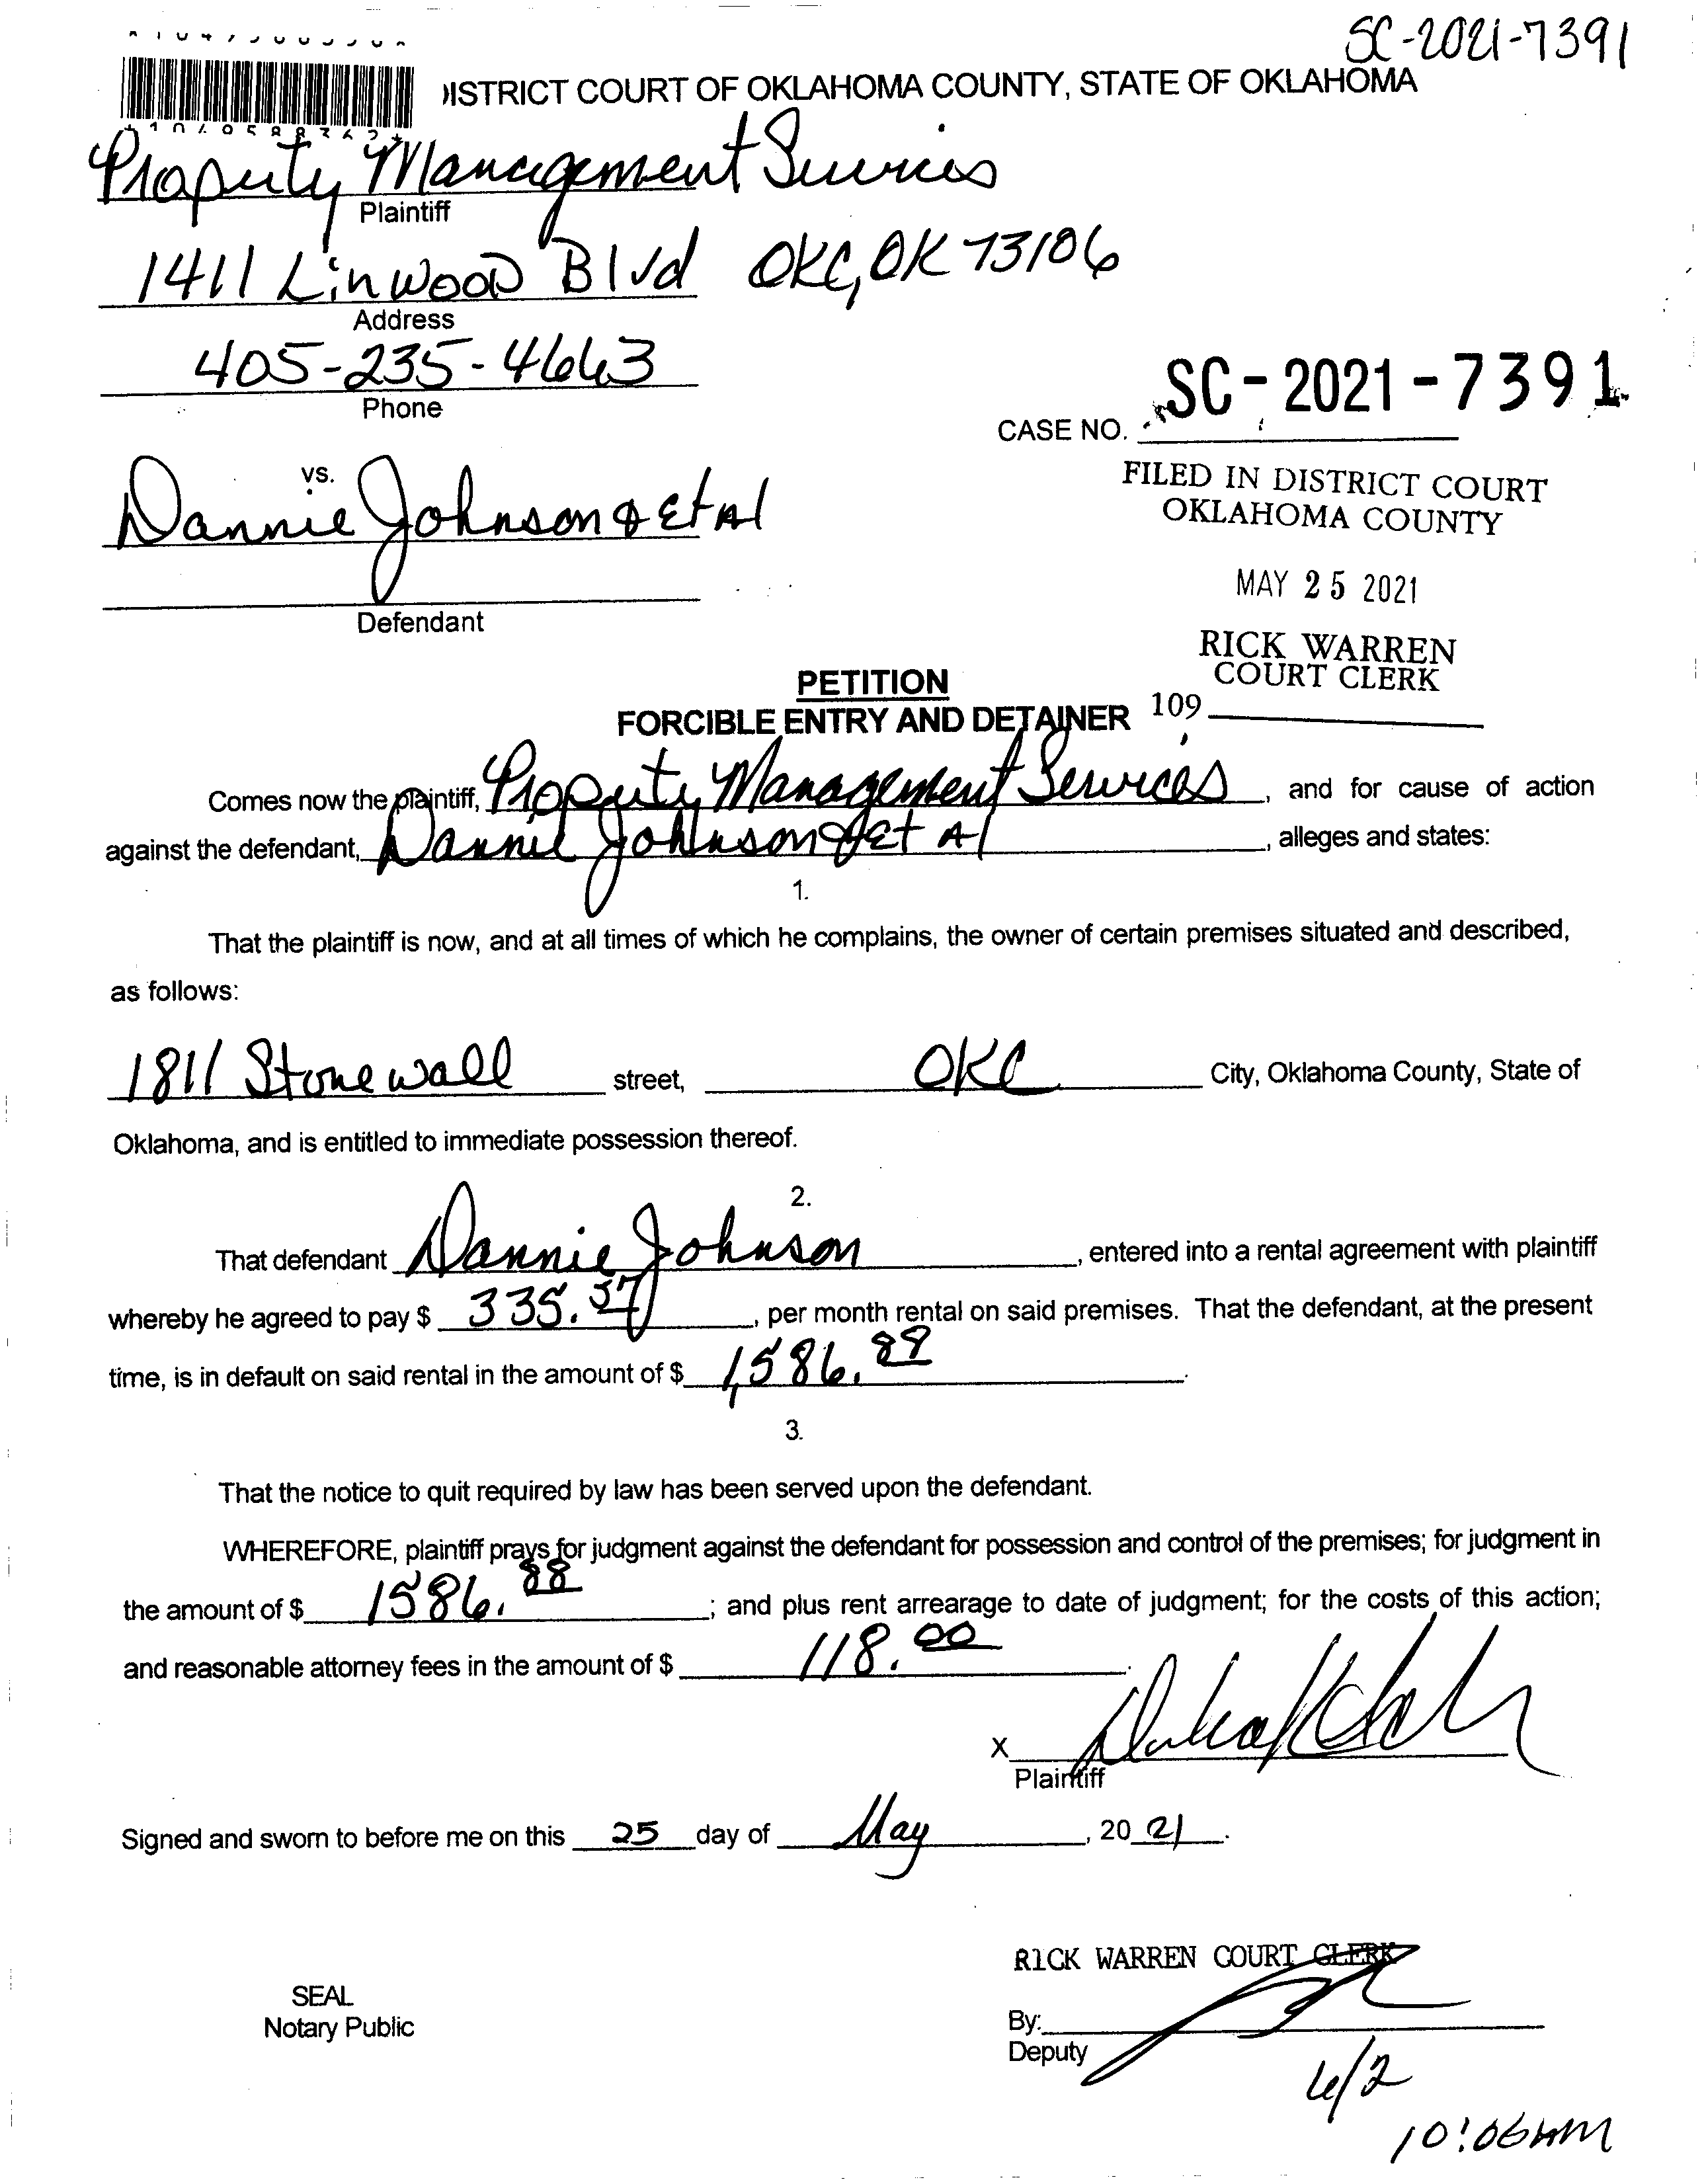 SC-2021-7391
DISTRICT COURT OF OKLAHOMA COUNTY, STATE OF OKLAHOMA
Property Management Services
Plaintiff
1411 Linwood Blvd OKC, OK 73106
Address
405-235-4663
Phone
CASE NO. SC-2021-7391
vs.
Dannie Johnson & Et Al
Defendant
FILED IN DISTRICT COURT
OKLAHOMA COUNTY
MAY 25 2021
RICK WARREN
COURT CLERK
109
PETITION
FORCIBLE ENTRY AND DETAINER
Comes now the plaintiff, Property Management Services, and for cause of action
against the defendant, Dannie Johnson & Et Al, alleges and states:
1.
That the plaintiff is now, and at all times of which he complains, the owner of certain premises situated and described,
as follows:
1811 Stonewall street, OKC City, Oklahoma County, State of
Oklahoma, and is entitled to immediate possession thereof.
2.
That defendant Dannie Johnson, entered into a rental agreement with plaintiff
whereby he agreed to pay $ 335.37, per month rental on said premises. That the defendant, at the present
time, is in default on said rental in the amount of $ 1,586.88.
3.
That the notice to quit required by law has been served upon the defendant.
WHEREFORE, plaintiff prays for judgment against the defendant for possession and control of the premises; for judgment in
the amount of $ 1586.88; and plus rent arrearage to date of judgment; for the costs of this action;
and reasonable attorney fees in the amount of $ 118.00.
X
Plaintiff
Signed and sworn to before me on this 25 day of May, 2021.
RICK WARREN COURT CLERK
SEAL
Notary Public
By:
Deputy
6/2
10:06AM